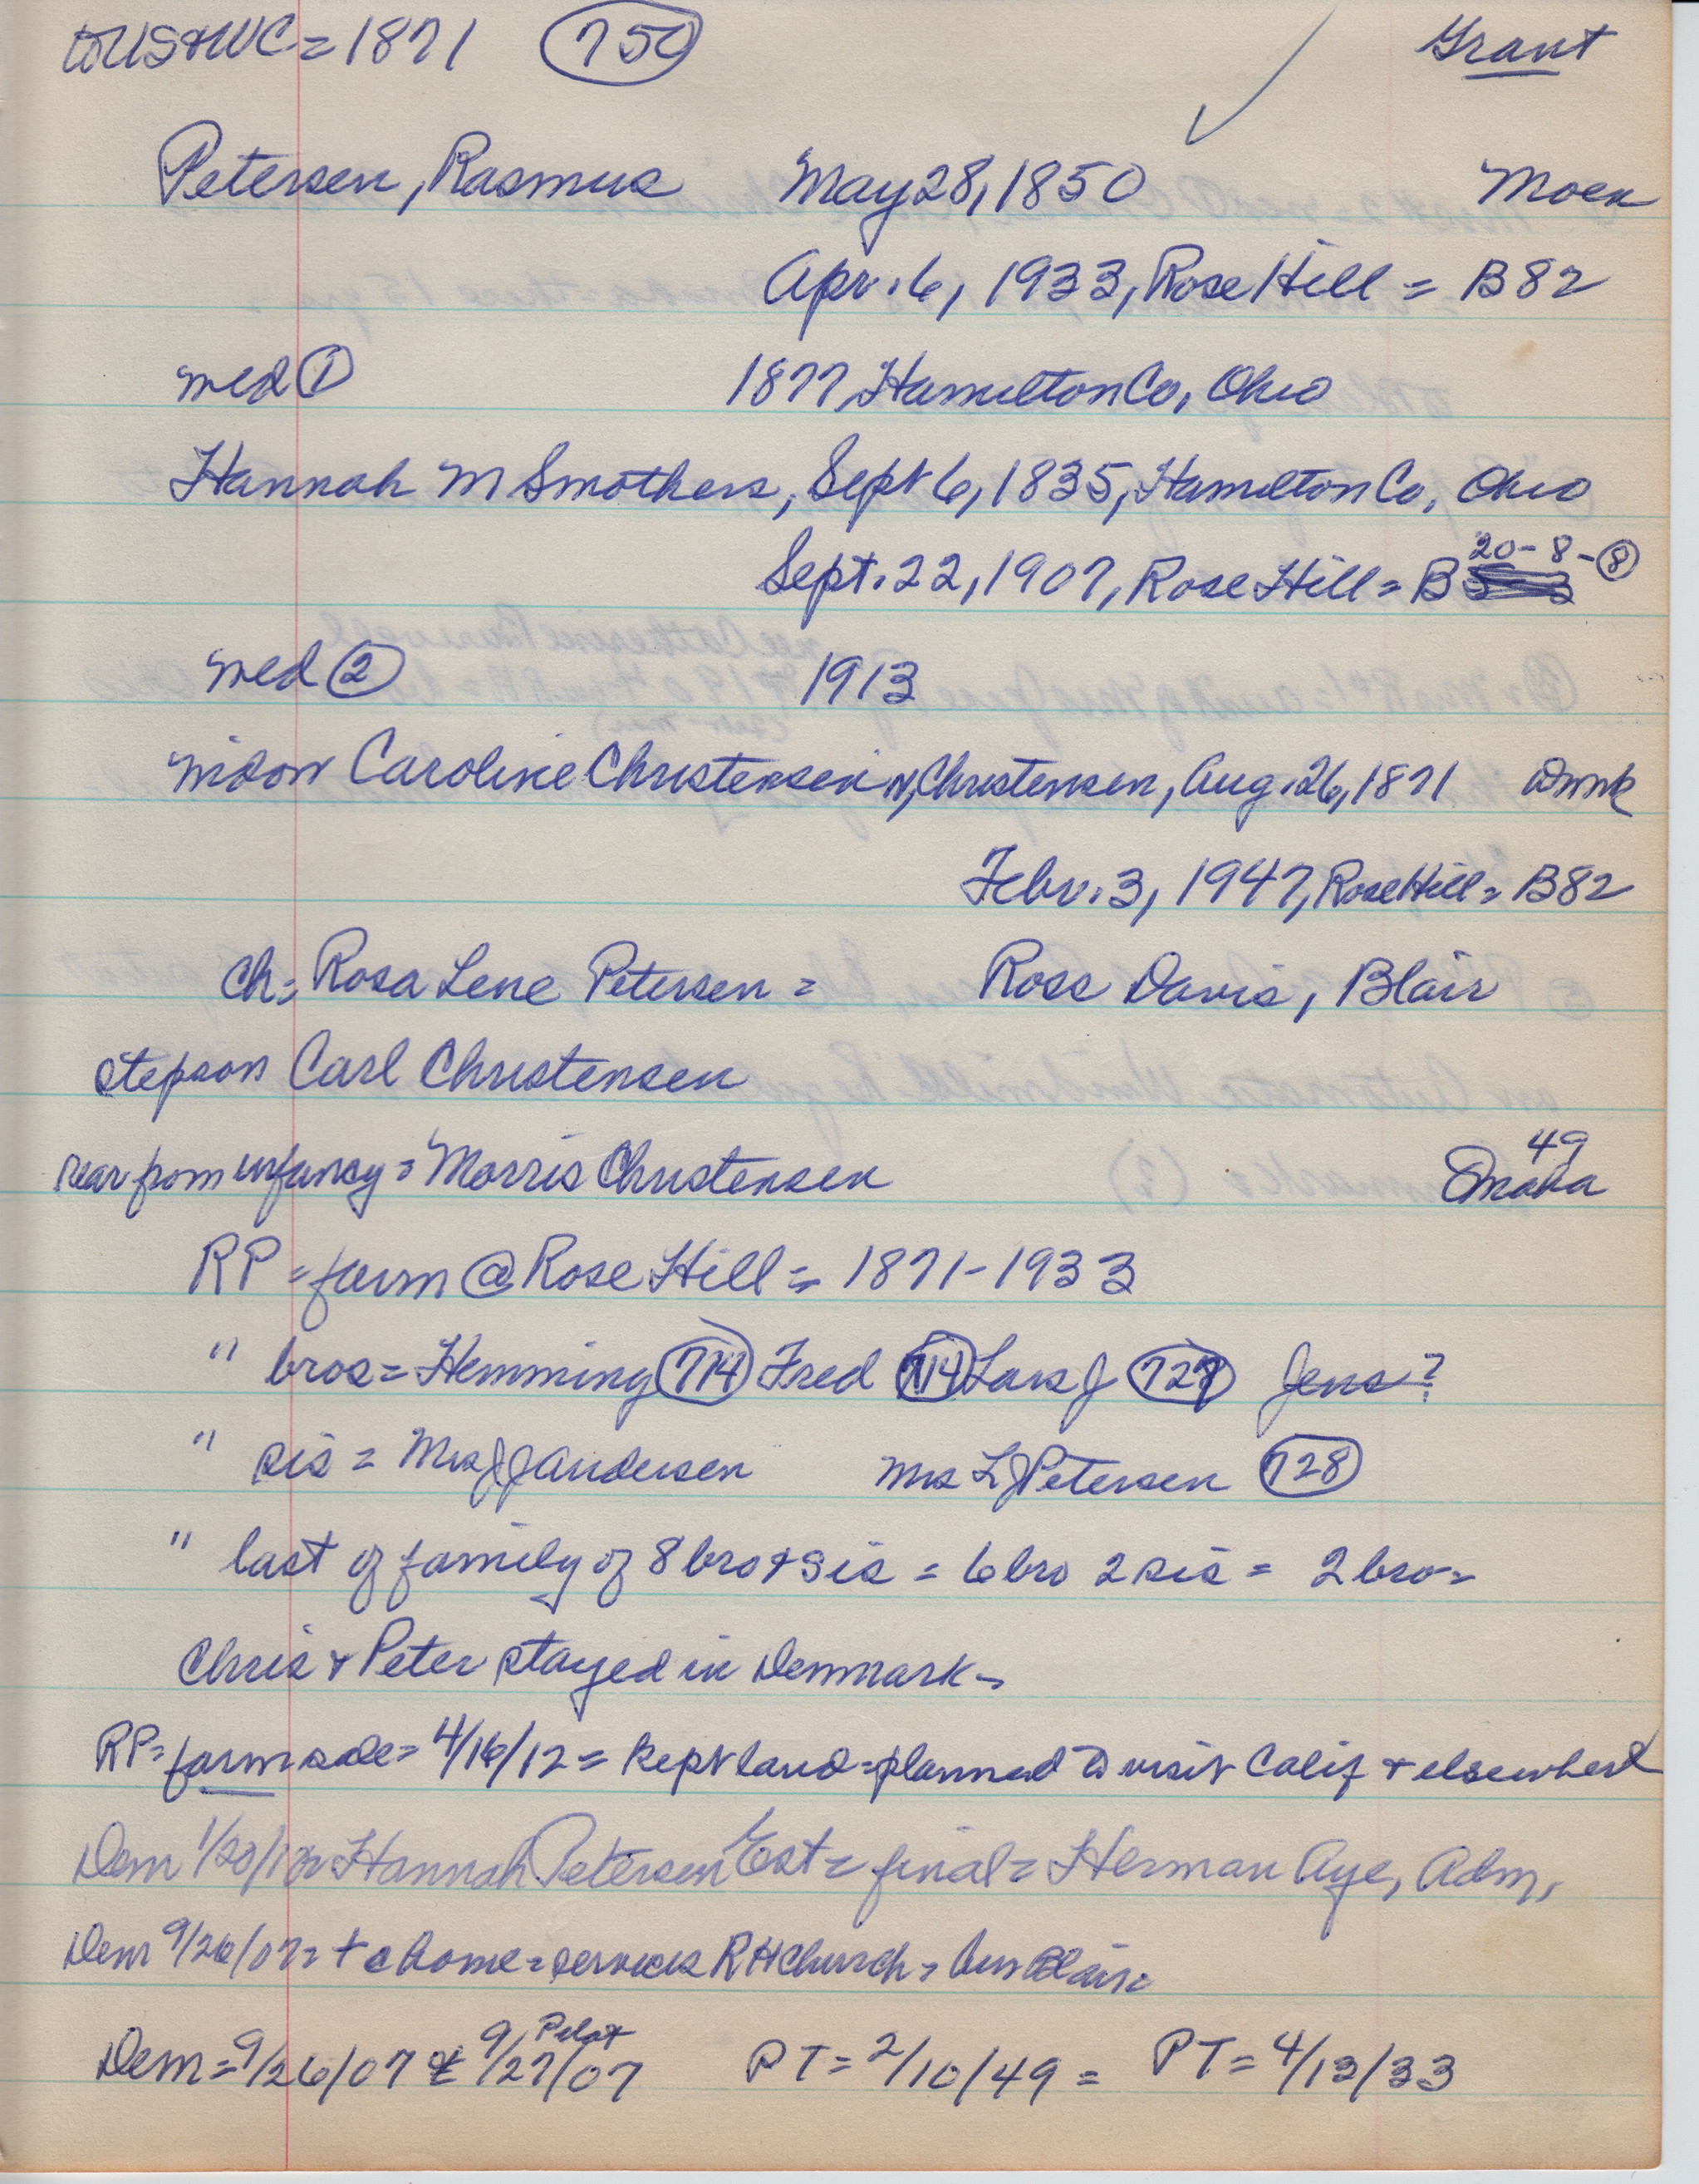 to US & WC = 1871 750 Grant
Petersen, Rasmus May 28, 1850 Moen
Apr. 6, 1933, Rose Hill = B82
med ① 1877, Hamilton Co, Ohio
Hannah M Smothers, Sept 6, 1835, Hamilton Co, Ohio
20-8-⑧
Sept. 22, 1907, Rose Hill = B
med ② 1913
widow Caroline Christensen N, Christensen, Aug. 26, 1871 Dnmk
Febr. 3, 1947, Rose Hill = B82
ch = Rosa Lene Petersen = Ross Davis, Blair
stepson Carl Christensen
49
rear from infancy = Morris Christensen Omaha
RP = farm @ Rose Hill = 1871-1933
" bros = Hemming 714 Fred 714 Lars J 727 Jens?
" sis = Mrs JJ Andersen Mrs LJ Petersen 728
" last of family of 8 bro & sis = 6 bro 2 sis = 2 bro =
Chris & Peter stayed in Denmark =
RP = farm sale = 4/16/12 = kept land = planned to visit Calif & elsewhere
Dem Hannah Petersen Est = final = Herman Aye, Adm,
Dem 9/26/07 = + @ home = services RH Church = bur Blair =
Pilot
Dem = 9/26/07 & 9/27/07 PT = 2/10/49 = PT = 4/13/33